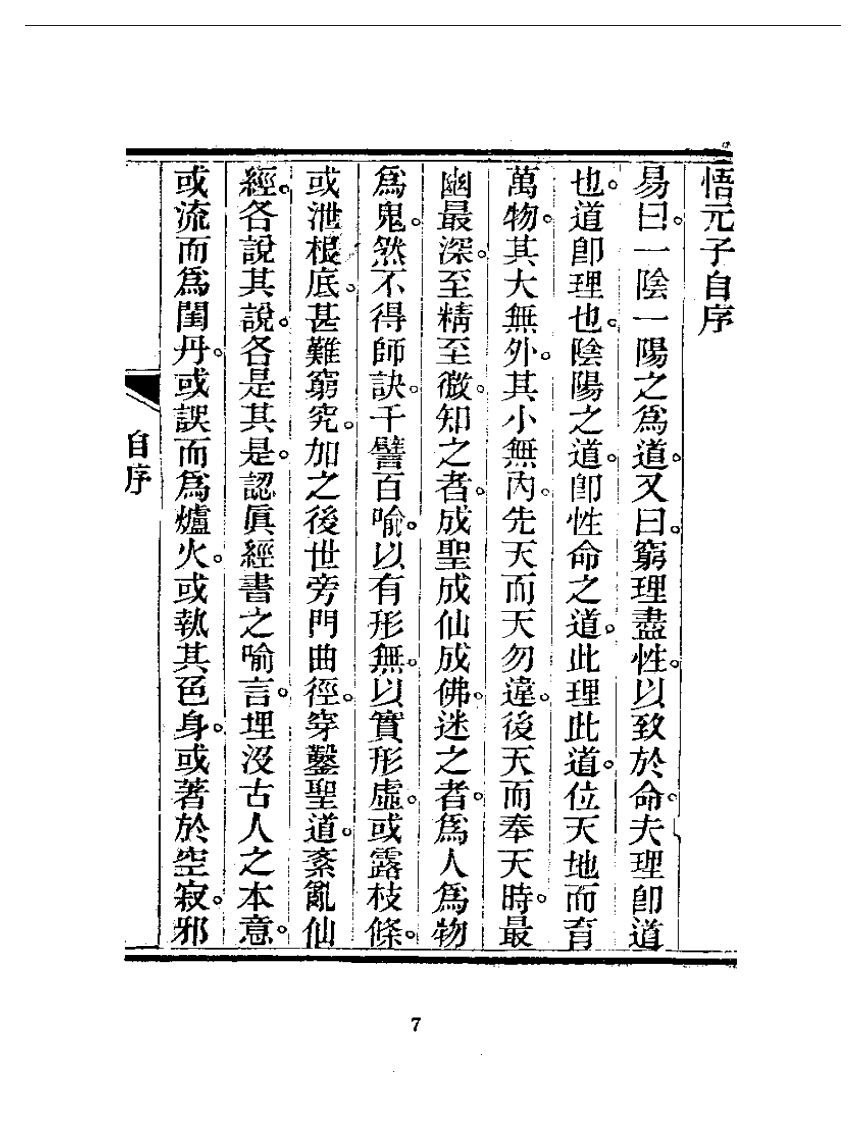 悟元子自序
易曰。一陰一陽之爲道。又曰。窮理盡性。以致於命。夫理卽道
也。道卽理也。陰陽之道。卽性命之道。此理此道。位天地而育
萬物。其大無外。其小無內。先天而天勿違。後天而奉天時。最
幽最深。至精至微。知之者。成聖成仙成佛。迷之者。爲人爲物
爲鬼。然不得師訣。千譬百喻。以有形無。以實形虛。或露枝條。
或泄根底。甚難窮究。加之後世旁門曲徑。穿鑿聖道。紊亂仙
經。各說其說。各是其是。認眞經書之喻言。埋沒古人之本意。
或流而爲閨丹。或誤而爲爐火。或執其色身。或著於空寂。邪
自序
7